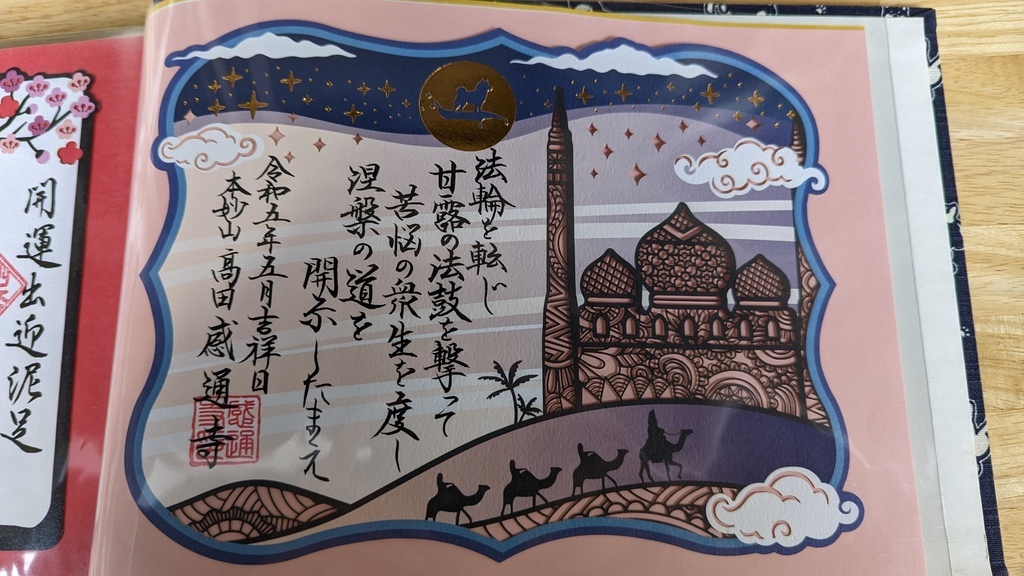 法輪を転じ
甘露の法鼓を撃って
苦悩の衆生を度し
涅槃の道を
開示したまえ
令和五年五月吉祥日
本妙山高田感通寺
感通
寺
開運出迎泥足